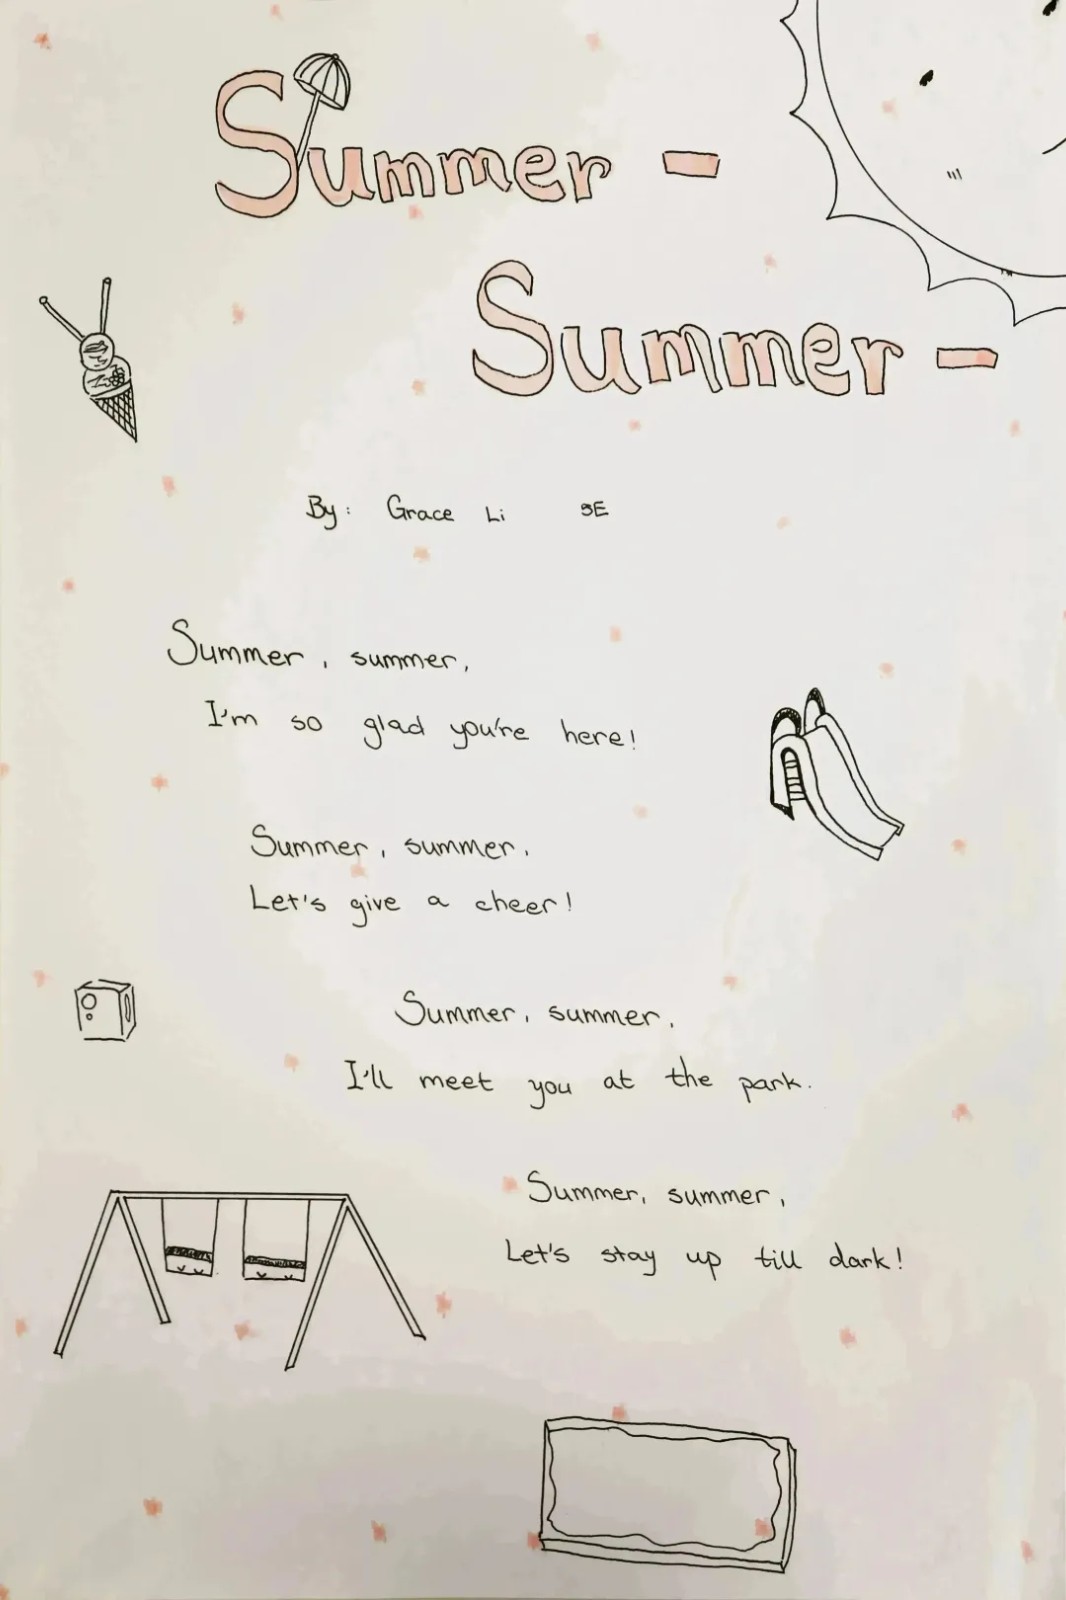 Summer -
Summer -
By: Grace Li 9E
Summer, summer,
I'm so glad you're here!
Summer, summer,
Let's give a cheer!
Summer, summer,
I'll meet you at the park.
Summer, summer,
Let's stay up till dark!